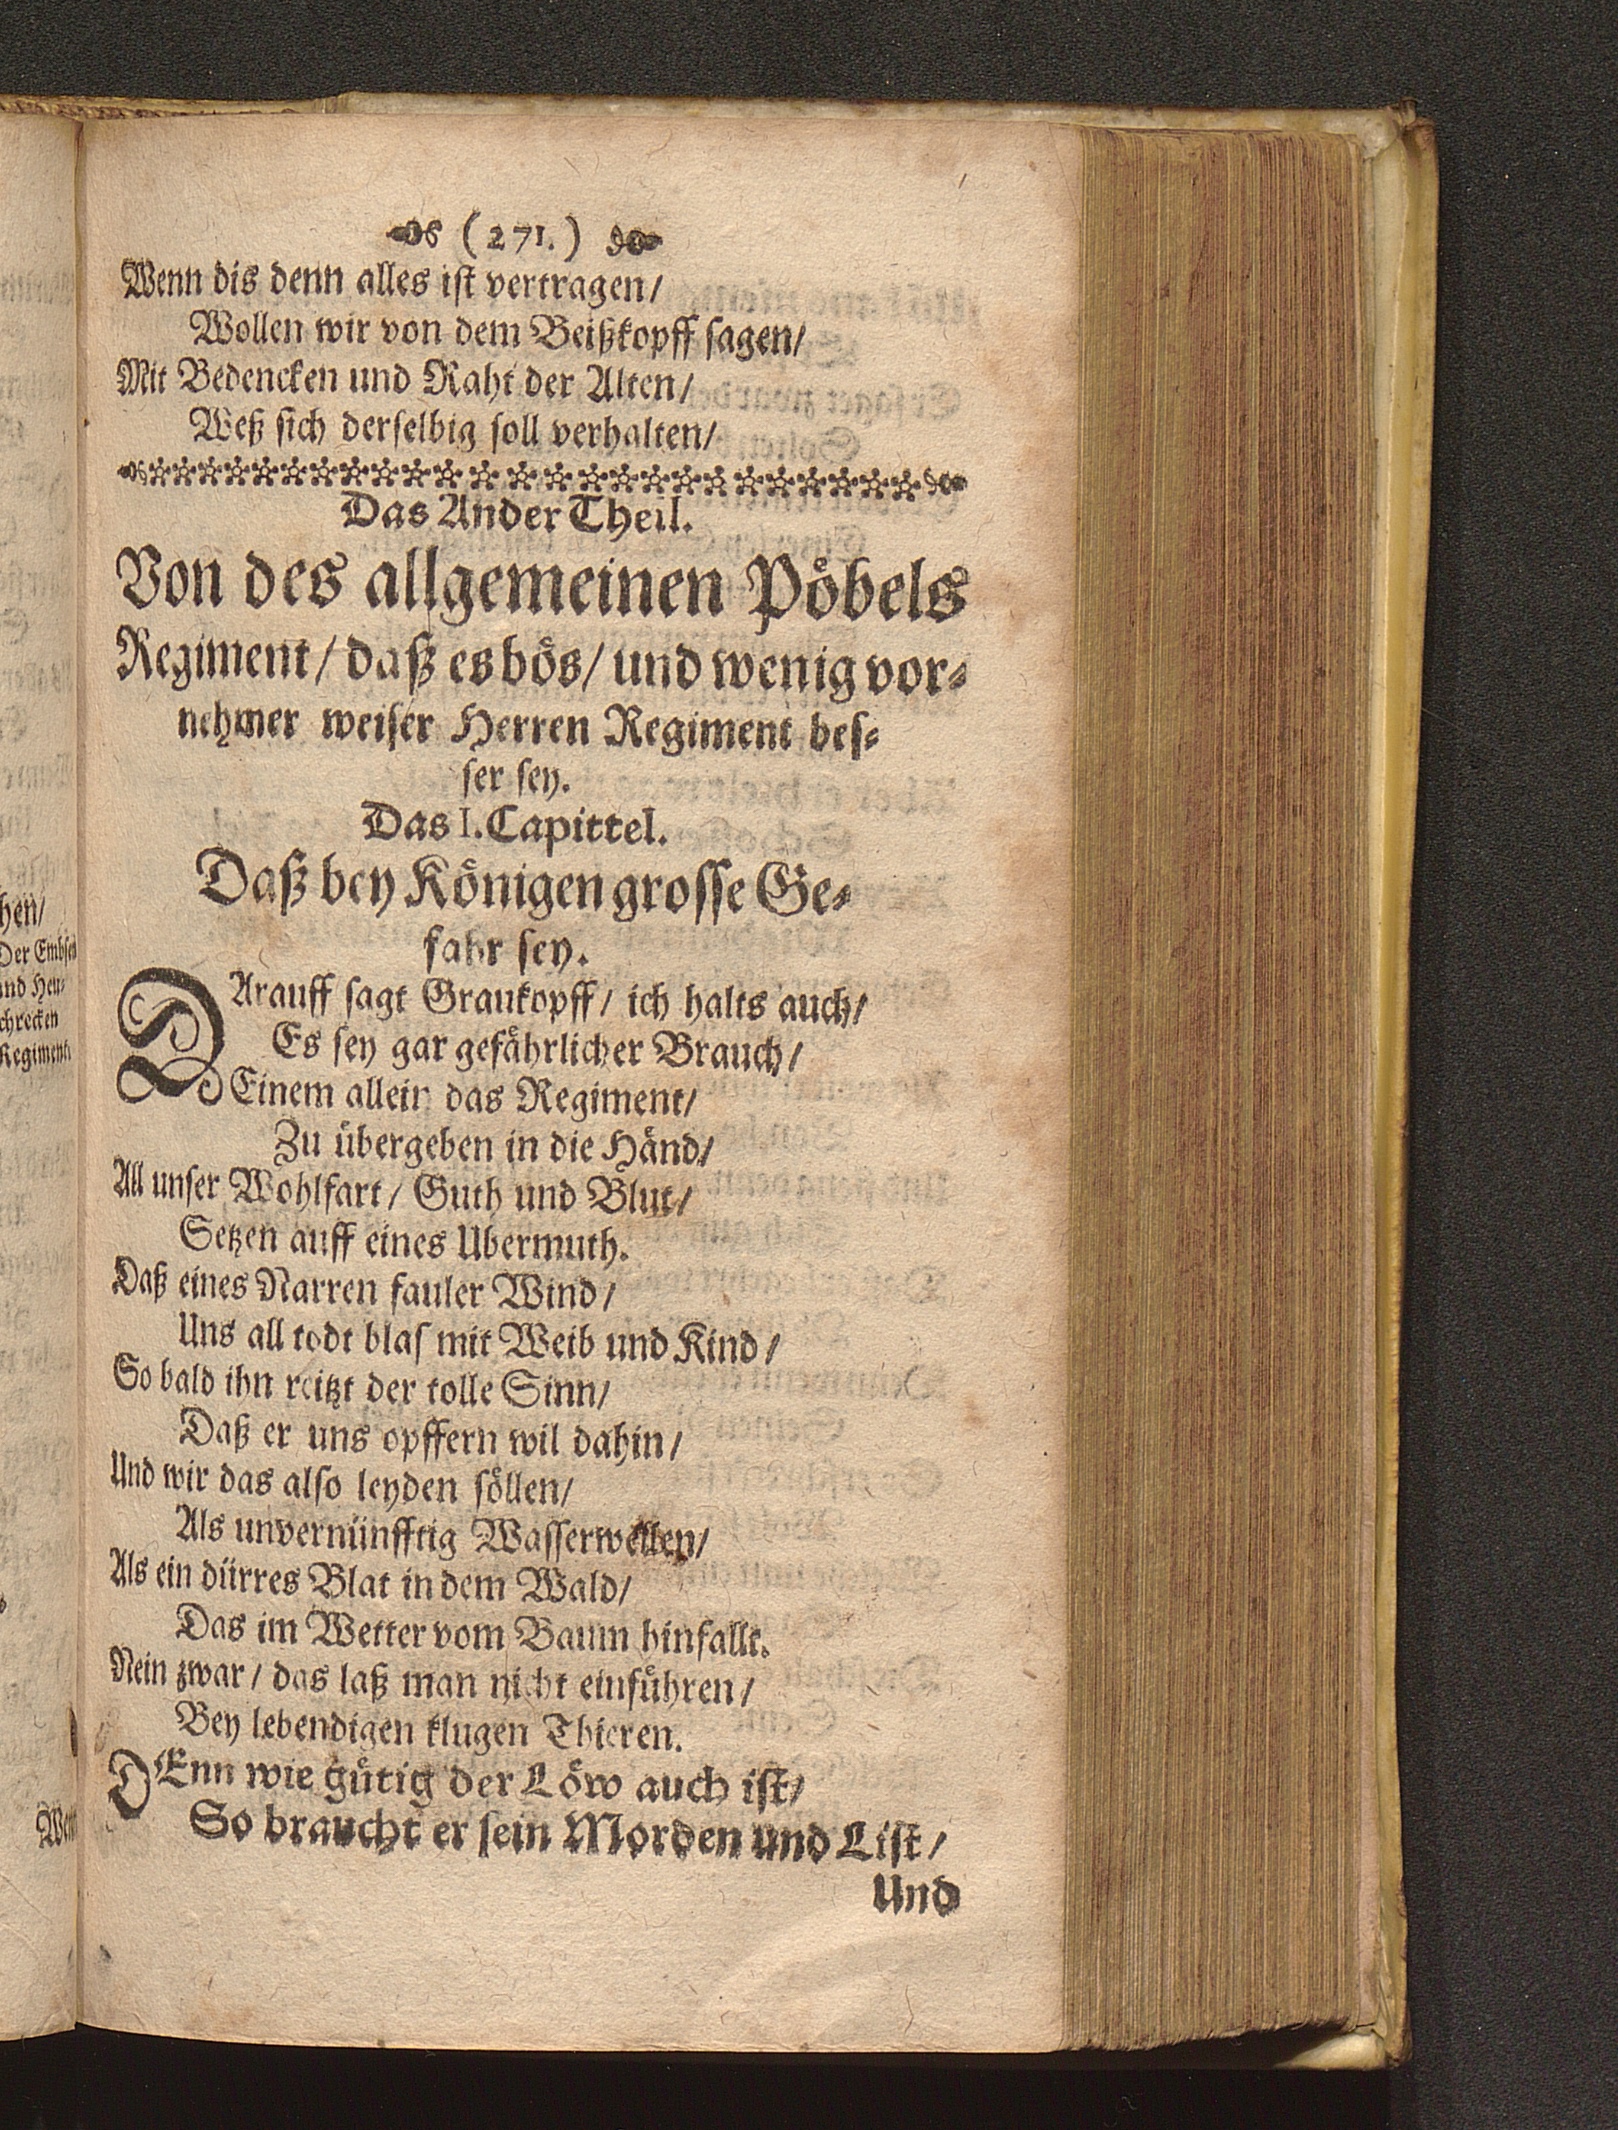 (271.)
Wenn dis denn alles ist vertragen/
Wollen wir von dem Beißkopff sagen/
Mit Bedencken und Raht der Alten/
Weß sich derselbig soll verhalten/
Das Ander Theil.
Von des allgemeinen Pöbels
Regiment/ daß es bös/ und wenig vor-
nehmer weiser Herren Regiment bes-
ser sey.
Das I. Capittel.
Daß bey Königen grosse Ge-
fahr sey.
DArauff sagt Graukopff/ ich halts auch/
Es sey gar gefährlicher Brauch/
Einem allein das Regiment/
Zu übergeben in die Händ/
All unser Wohlfart/ Guth und Blut/
Setzen auff eines Ubermuth.
Daß eines Narren fauler Wind/
Uns all todt blas mit Weib und Kind/
So bald ihn reitzt der tolle Sinn/
Daß er uns opffern wil dahin/
Und wir das also leyden söllen/
Als unvernünfftig Wasserwellen/
Als ein dürres Blat in dem Wald/
Das im Wetter vom Baum hinfallt.
Nein zwar/ das laß man nicht einführen/
Bey lebendigen klugen Thieren.
DEnn wie gütig der Löw auch ist/
So braucht er sein Morden und List/
Und
hen/
Der Embsen
und Heu-
schrecken
Regiment